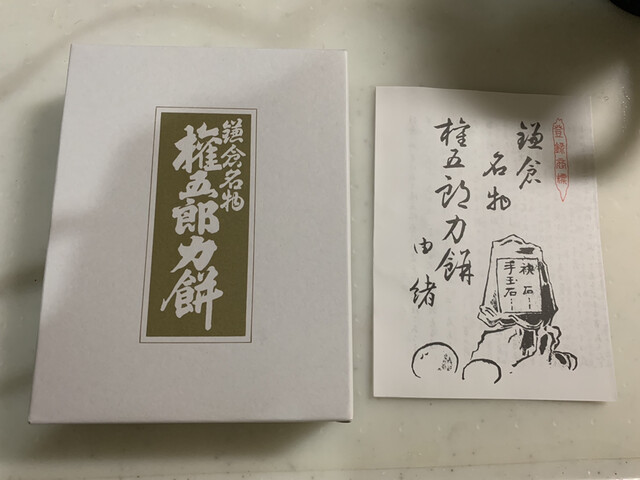 鎌倉名物
権五郎力餅
登録商標
鎌倉
名物
権五郎力餅
由緒
袂石
手玉石